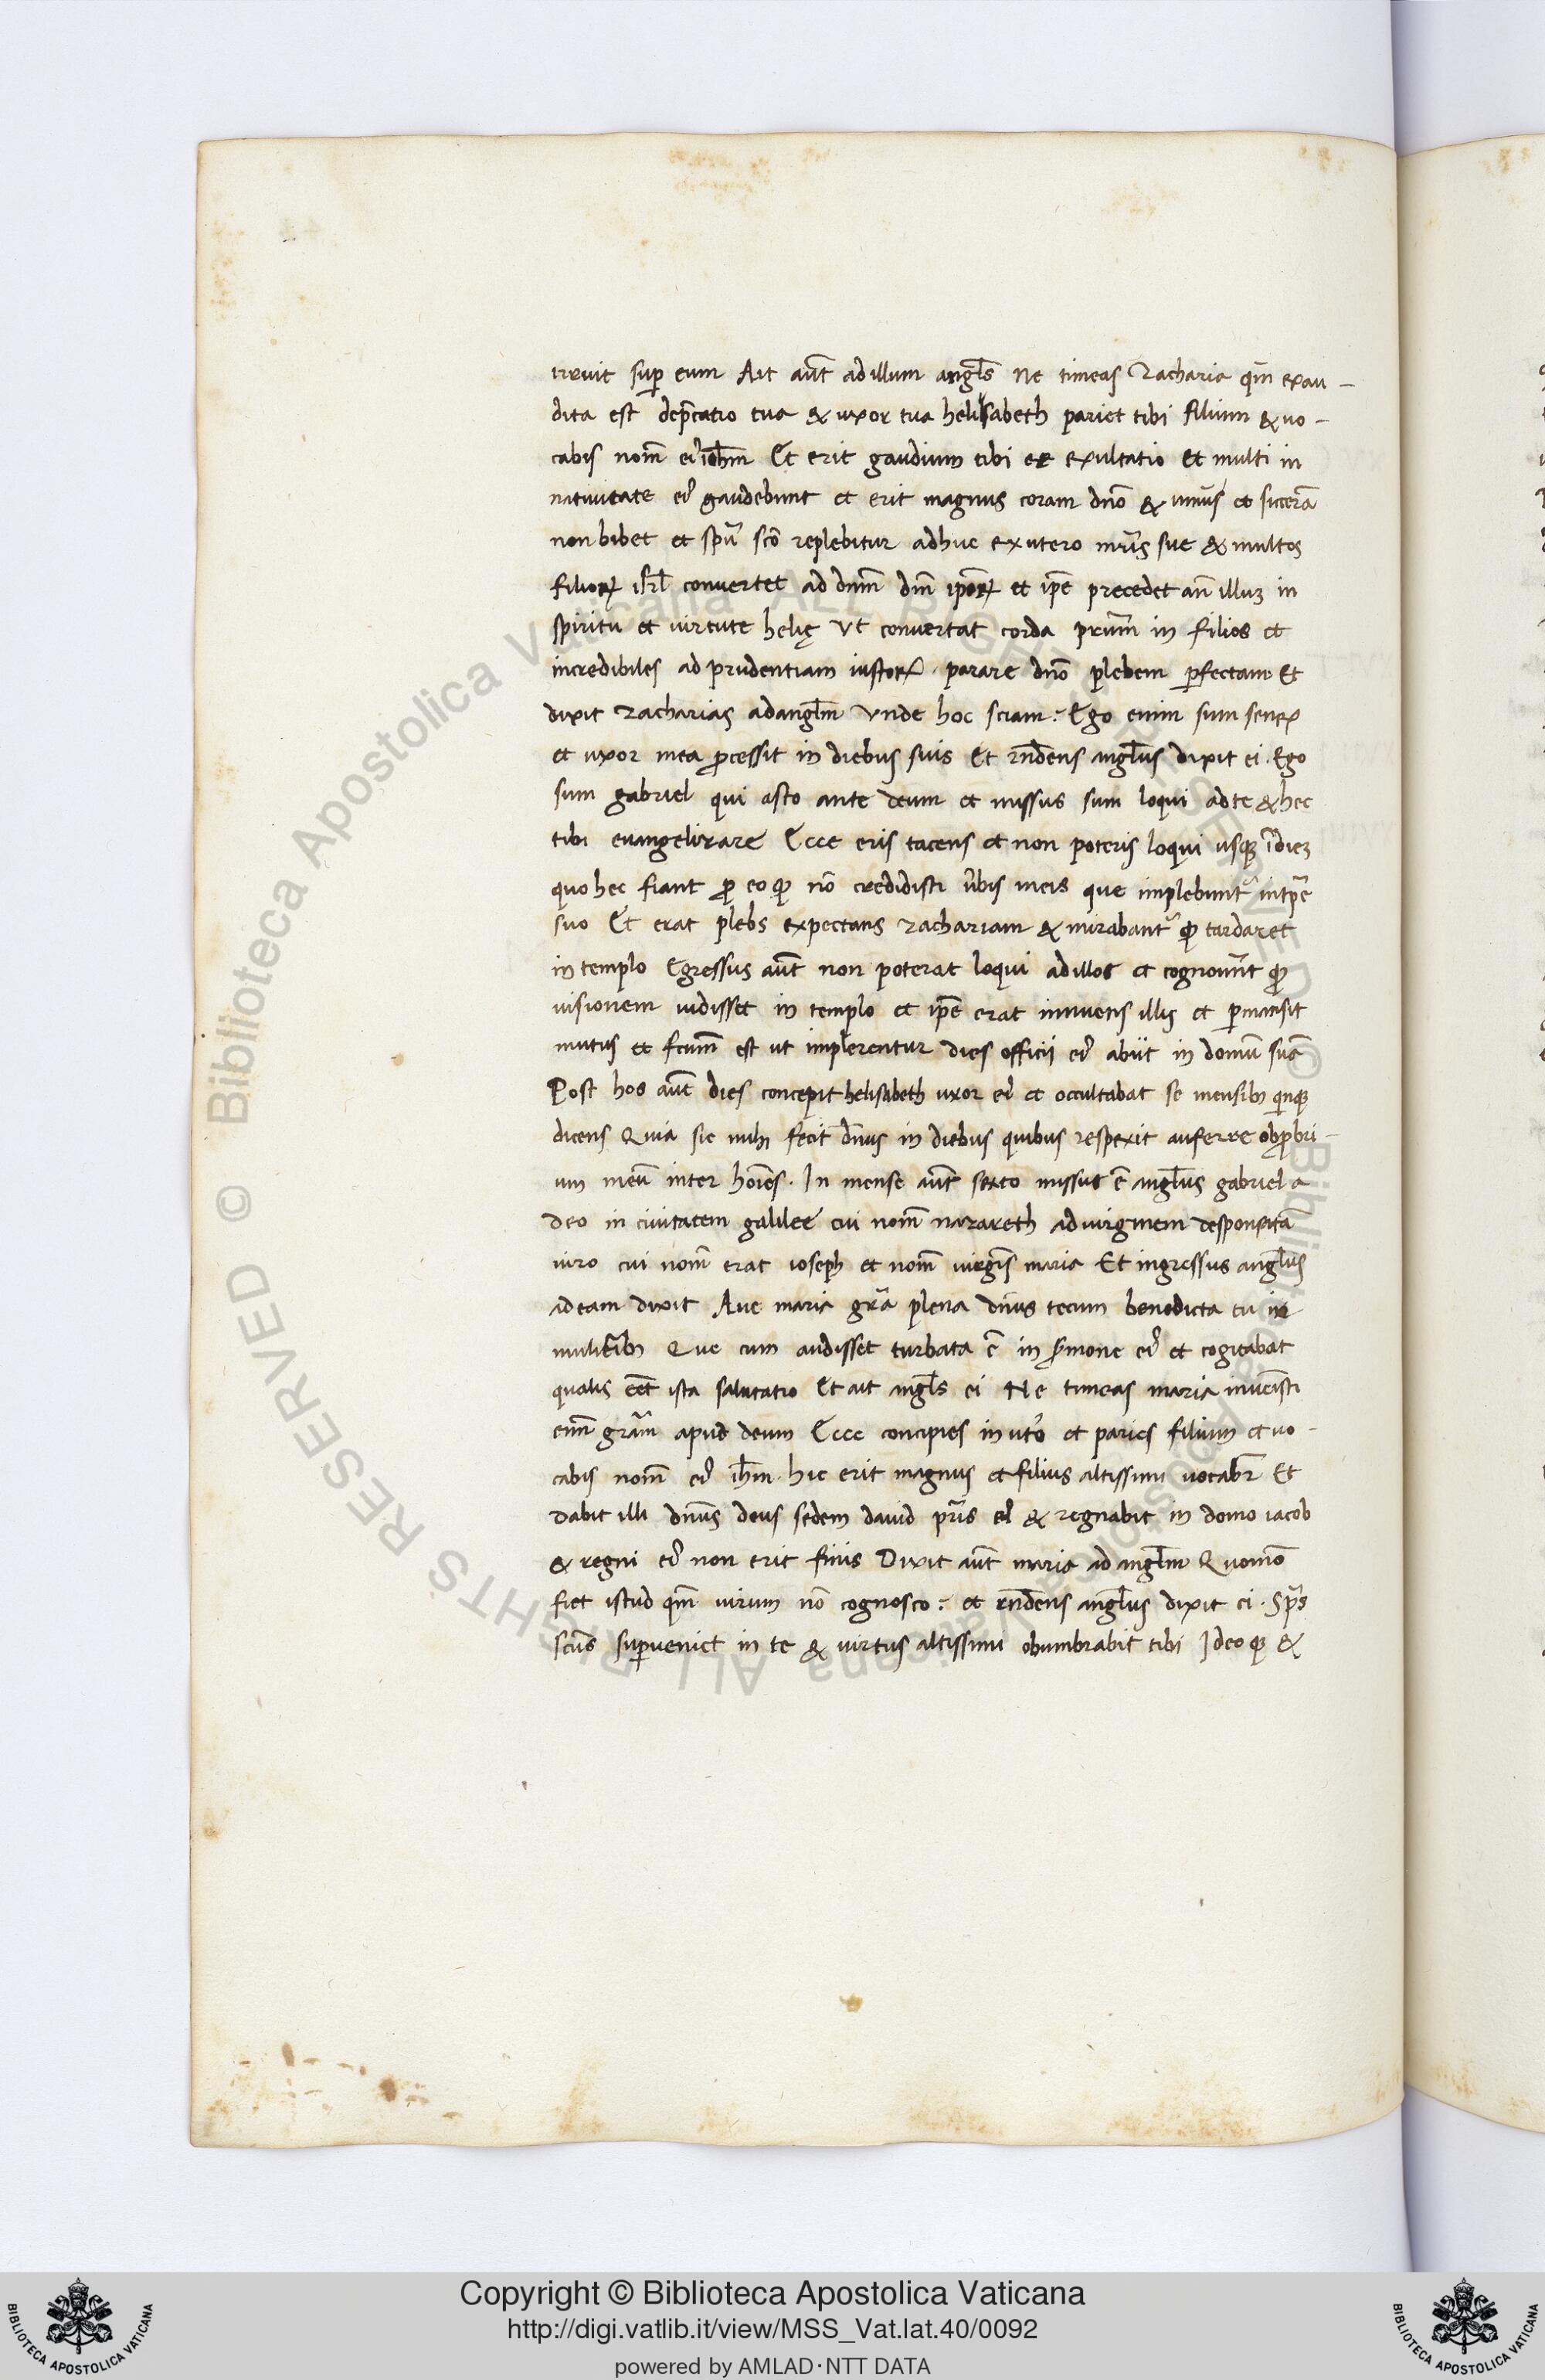 irruit sup̱ eum Ait aūt ad illum angl̄s Ne timeas Zacharia qm̄ exau-
dita est dep̄catio tua & uxor tua helisabeth pariet tibi filium & uo-
cabis nom̄ ei9 ioh̄m Et erit gaudium tibi et exultatio Et multi in
natiuitate ei9 gaudebunt et erit magnus coram dn̄o & uinūs et sicerā
non bibet et sp̄u sc̄o replebitur adhuc ex utero mr̄is sue & multos
filioꝝ isrl̄ conuertet ad dn̄m dm̄ ip̄oꝝ et ip̄e precedet an̄ illuꝫ in
spiritu et uirtute helię Vt conuertat corda pr̄um in filios et
incredibiles ad prudentiam iustoꝝ. parare dn̄o plebem ꝑfectam Et
dixit Zacharias ad angl̄m Vnde hoc sciam? Ego enim sum senex
et uxor mea ꝓcessit in diebus suis Et rn̄dens angl̄us dixit ei. Ego
sum gabriel qui asto ante deum et missus sum loqui ad te & hec
tibi euangelizare Ecce eris tacens et non poteris loqui usqꝫ ī dieꝫ
quo hec fiant ꝓ eo qꝫ nō credidisti ūbis meis que implebunt᷑ in tp̄e
suo Et erat plebs expectans zachariam & mirabant᷑ qꝫ tardaret
in templo Egressus aūt non poterat loqui ad illos et cognouer̄t qꝫ
uisionem uidisset in templo et ip̄e erat innuens illis et ꝑmansit
mutus et fc̄um est ut implerentur dies officii ei9 abiit in domū suā
Post hos aūt dies concepit helisabeth uxor ei9 et occultabat se mensibꝫ qinqꝫ
dicens Quia sic mihi fecit dn̄us in diebus quibus respexit auferre obꝓbri-
um meū inter hoīes. In mense aūt sexto missus ē angl̄us gabriel a
deo in ciuitatem galilee cui nom̄ nazareth ad uirginem desponsatā
uiro cui nom̄ erat ioseph et nom̄ uirgīs maria Et ingressus angl̄us
ad eam dixit Aue maria gr̄a plena dn̄us tecum benedicta tu in
mulierībꝫ Que cum audisset turbata ē in s̄mone ei9 et cogitabat
qualis eēt ista salutatio Et ait angl̄s ei Ne timeas maria inuenisti
eīm gr̄am apud deum Ecce concipies in ut̄o et paries filium et uo-
cabis nom̄ ei9 ih̄m. hic erit magnus et filius altissimi uocabr̄ Et
dabit illi dn̄us deus sedem dauid pr̄is ei9 & regnabit in domo iacob
& regni ei9 non erit finis Dixit aūt maria ad angl̄m Quomō
fiet istud qm̄ uirum nō cognosco? et rn̄dens angl̄us dixit ei. Sp̄s
scūs suꝑueniet in te & uirtus altissimi obumbrabit tibi Ideoqꝫ &
© Biblioteca Apostolica Vaticana ALL RIGHTS RESERVED © Biblioteca Apostolica Vaticana ALL RIGHTS RESERVED
Copyright © Biblioteca Apostolica Vaticana
http://digi.vatlib.it/view/MSS_Vat.lat.40/0092
powered by AMLAD·NTT DATA
BIBLIOTECA APOSTOLICA VATICANA
BIBLIOTECA APOSTOLICA VATICANA